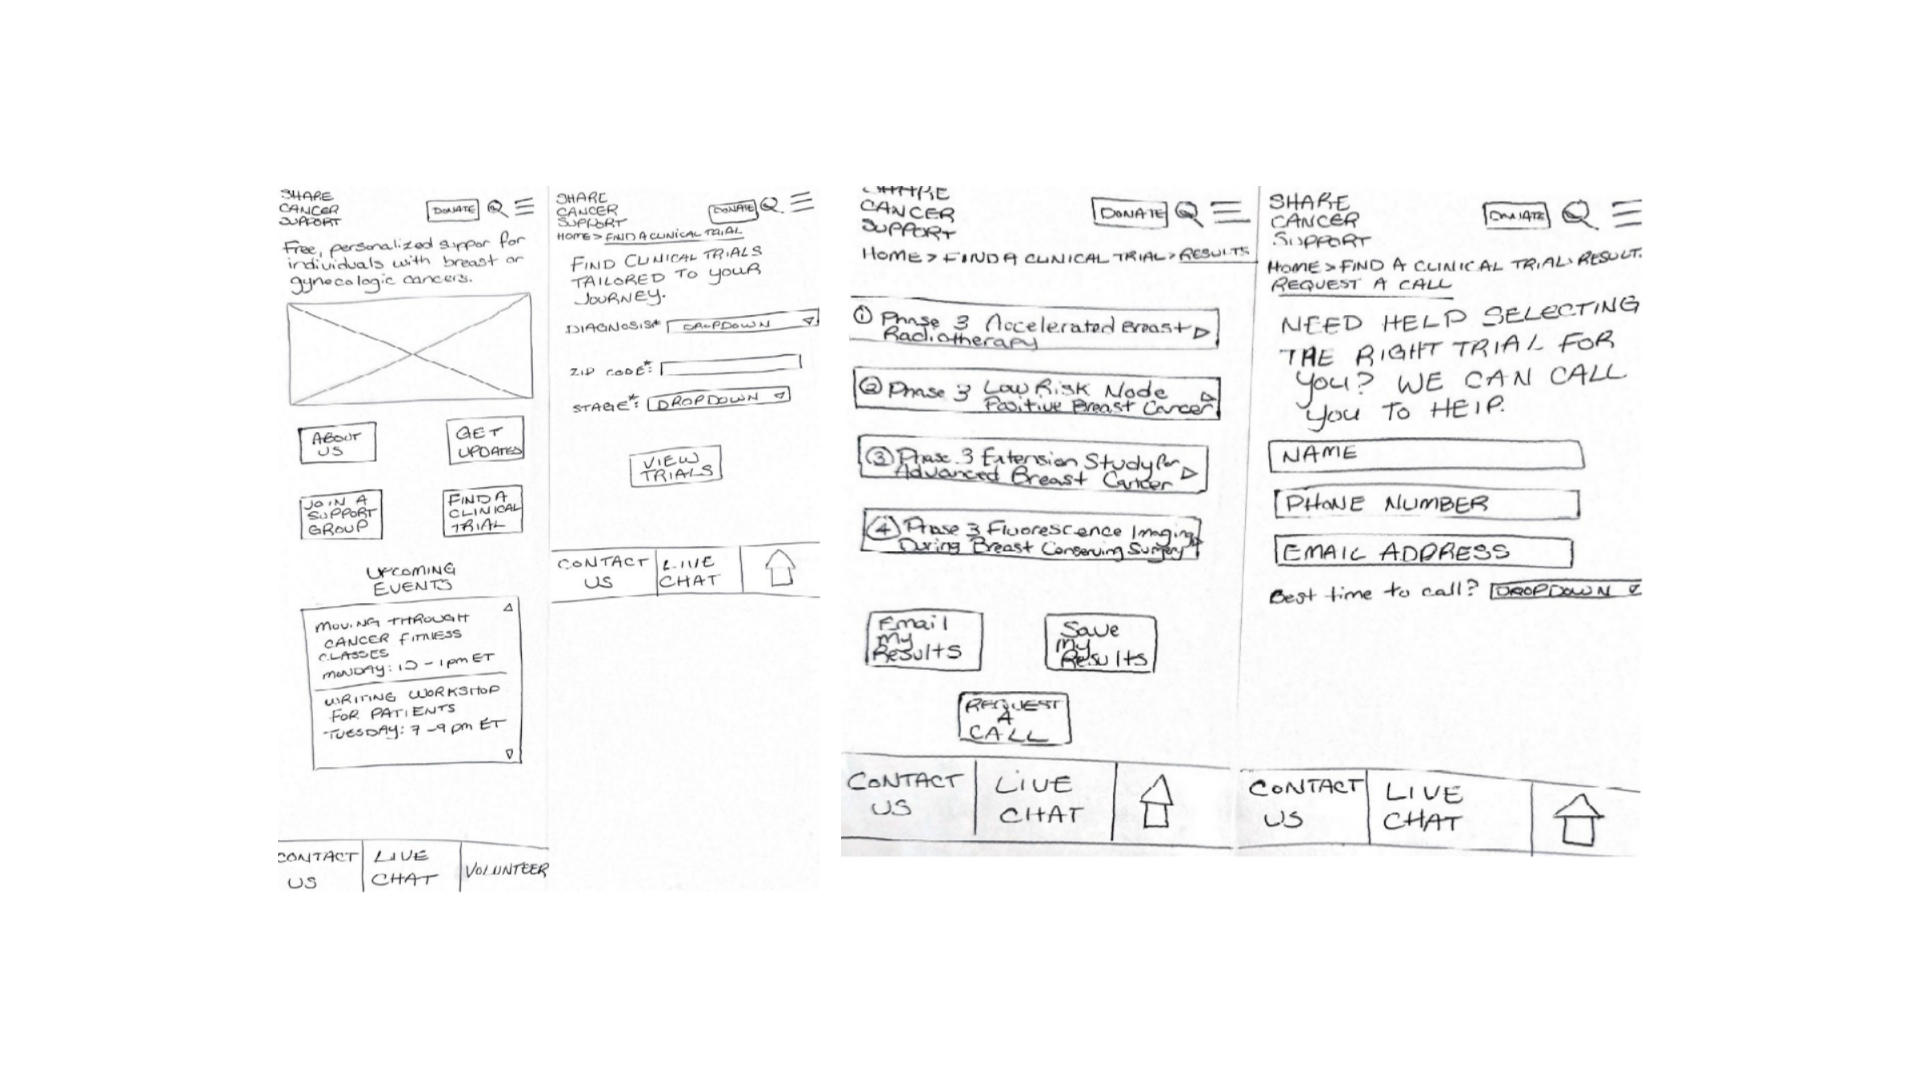 SHARE
CANCER
SUPPORT
DONATE
Free, personalized suppor for
individuals with breast or
gynecologic cancers.
ABOUT
US
GET
UPDATES
JOIN A
SUPPORT
GROUP
FIND A
CLINICAL
TRIAL
UPCOMING
EVENTS
MOVING THROUGH
CANCER FITNESS
CLASSES
MONDAY: 12-1pm ET
WRITING WORKSHOP
FOR PATIENTS
TUESDAY: 7-9 pm ET
CONTACT
US
LIVE
CHAT
VOLUNTEER
SHARE
CANCER
SUPPORT
DONATE
HOME > FIND A CLINICAL TRIAL
FIND CLINICAL TRIALS
TAILORED TO YOUR
JOURNEY.
DIAGNOSIS* DROPDOWN
ZIP CODE*:
STAGE*: DROPDOWN
VIEW
TRIALS
CONTACT
US
LIVE
CHAT
SHARE
CANCER
SUPPORT
DONATE
HOME > FIND A CLINICAL TRIAL > RESULTS
① Phase 3 Accelerated Breast
Radiotherapy
② Phase 3 Low Risk Node
Positive Breast Cancer
③ Phase 3 Extension Study for
Advanced Breast Cancer
④ Phase 3 Fluorescence Imaging
During Breast Conserving Surgery
Email
My
Results
Save
My
Results
REQUEST
A
CALL
CONTACT
US
LIVE
CHAT
SHARE
CANCER
SUPPORT
DONATE
HOME > FIND A CLINICAL TRIAL > RESULT.
REQUEST A CALL
NEED HELP SELECTING
THE RIGHT TRIAL FOR
YOU? WE CAN CALL
YOU TO HElP.
NAME
PHONE NUMBER
EMAIL ADDRESS
Best time to call? DROPDOWN
CONTACT
US
LIVE
CHAT